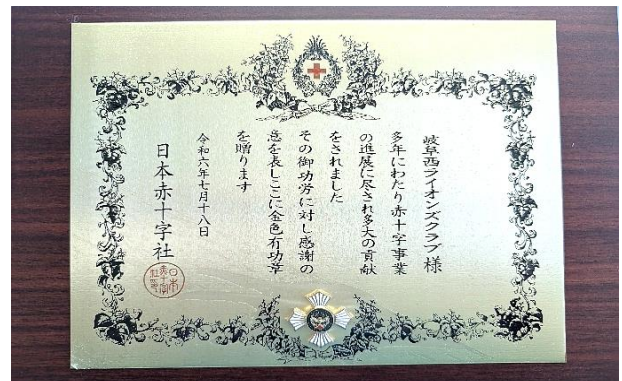 岐阜西ライオンズクラブ 様
多年にわたり赤十字事業
の進展に尽され多大の貢献
をされました
その御功労に対し感謝の
意を表しここに金色有功章
を贈ります
令和六年七月十八日
日本赤十字社